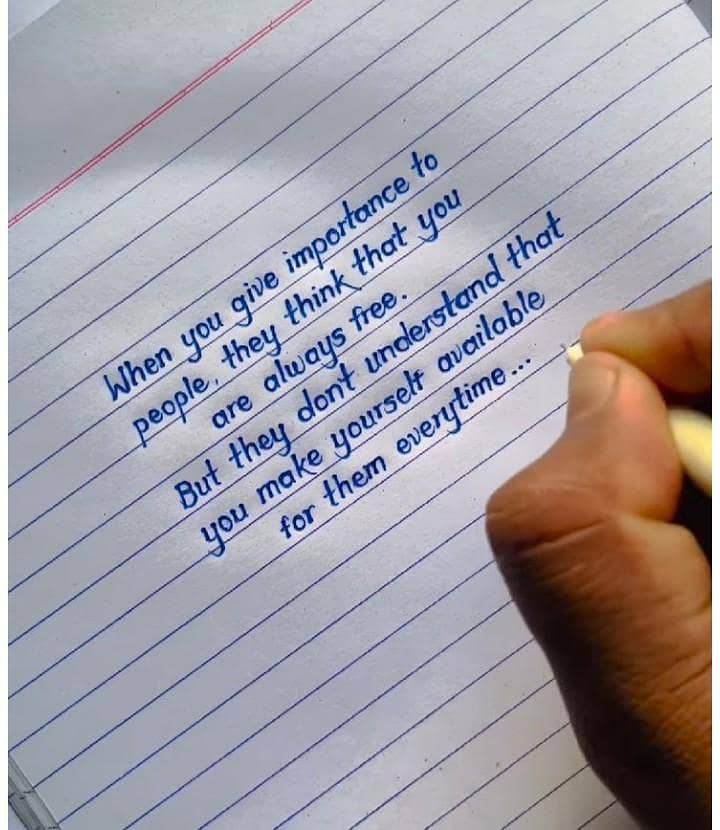 When you give importance to
people, they think that you
are always free.
But they dont understand that
you make yourself available
for them everytime...